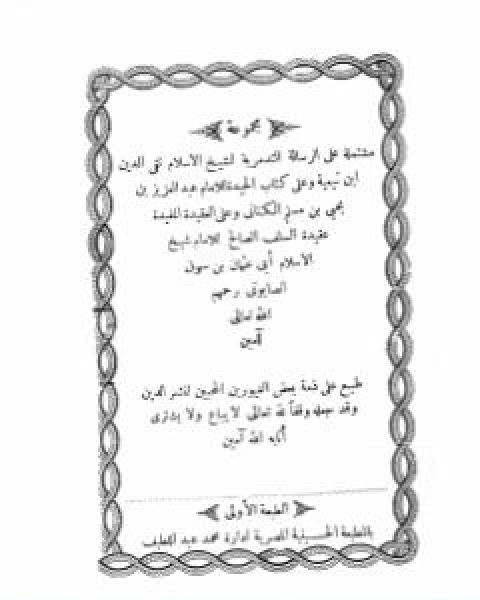 مجموعة
مشتملة على الرسالة التدمرية لشيخ الاسلام تقى الدين
ابن تيمية وعلى كتاب الحيدة للامام عبد العزيز بن
يحيى بن مسلم الكنانى وعلى العقيدة المفيدة
عقيدة السلف الصالح للامام شيخ
الاسلام أبى عثمان بن
الصابونى رحمهم
الله تعالى
آمين
طبع على نفقة بعض الغيورين المحبين لنشر الدين
وقد جعله وقفاً لله تعالى لا يباع ولا يشترى
أثابه الله آمين
الطبعة الأولى
بالمطبعة الحسينية المصرية ادارة محمد عبد اللطيف